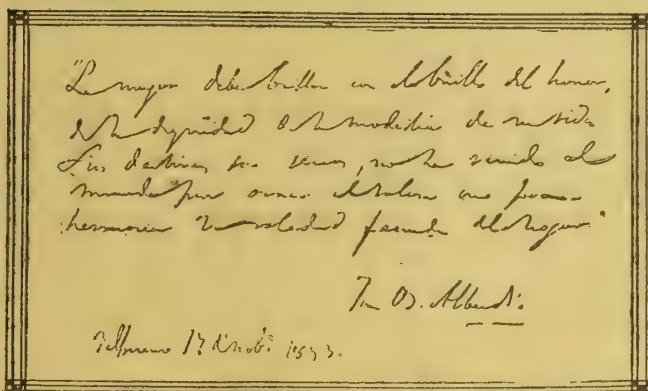 "La mujer debe brillar con el brillo del honor,
de la dignidad de la modestia de su vida
Sus destinos son serios, no ha venido al
mundo para ornar el salon sino para
hermosear la soledad fecunda del hogar"
B. Alberdi
Valparaiso